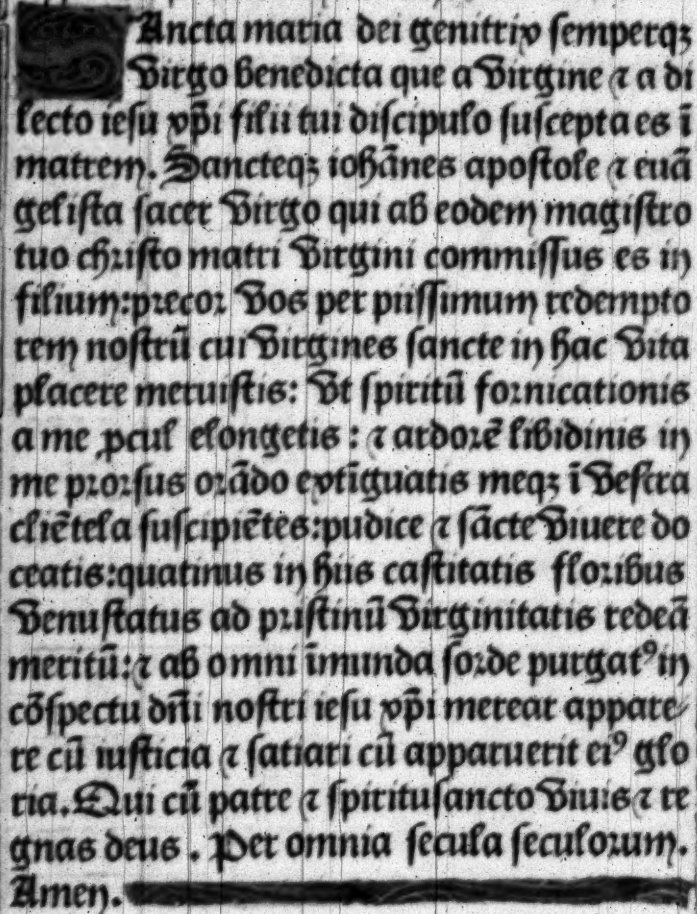 SAncta maria dei genitrix semperqꝫ
Virgo benedicta que a Virgine ⁊ a di
lecto iesu xp̄i filii tui discipulo suscepta es ī
matrem. Sancteqꝫ iohānes apostole ⁊ euā
gelista sacer Virgo qui ab eodem magistro
tuo christo matri Virgini commissus es in
filium:precor Vos per piissimum redempto
rem nostrū cui Virgines sancte in hac Vita
placere meruistis: Vt spiritū fornicationis
a me ꝓcul elongetis : ⁊ ardorē libidinis in
me prorsus orādo extīguatis meqꝫ ī Vestra
cliētela suscipiētes:pudice ⁊ sācte Viuere do
ceatis:quatinus in hiis castitatis floribus
Venustatus ad pristinū Virginitatis redeā
meritū:⁊ ab omni īmunda sorde purgatꝰ in
cōspectu dn̄i nostri iesu xp̄i merear appare
re cū iusticia ⁊ satiari cū apparuerit eiꝰ glo
ria. Qui cū patre ⁊ spiritusancto Viuis ⁊ re
gnas deus . Per omnia secula seculorum.
Amen.